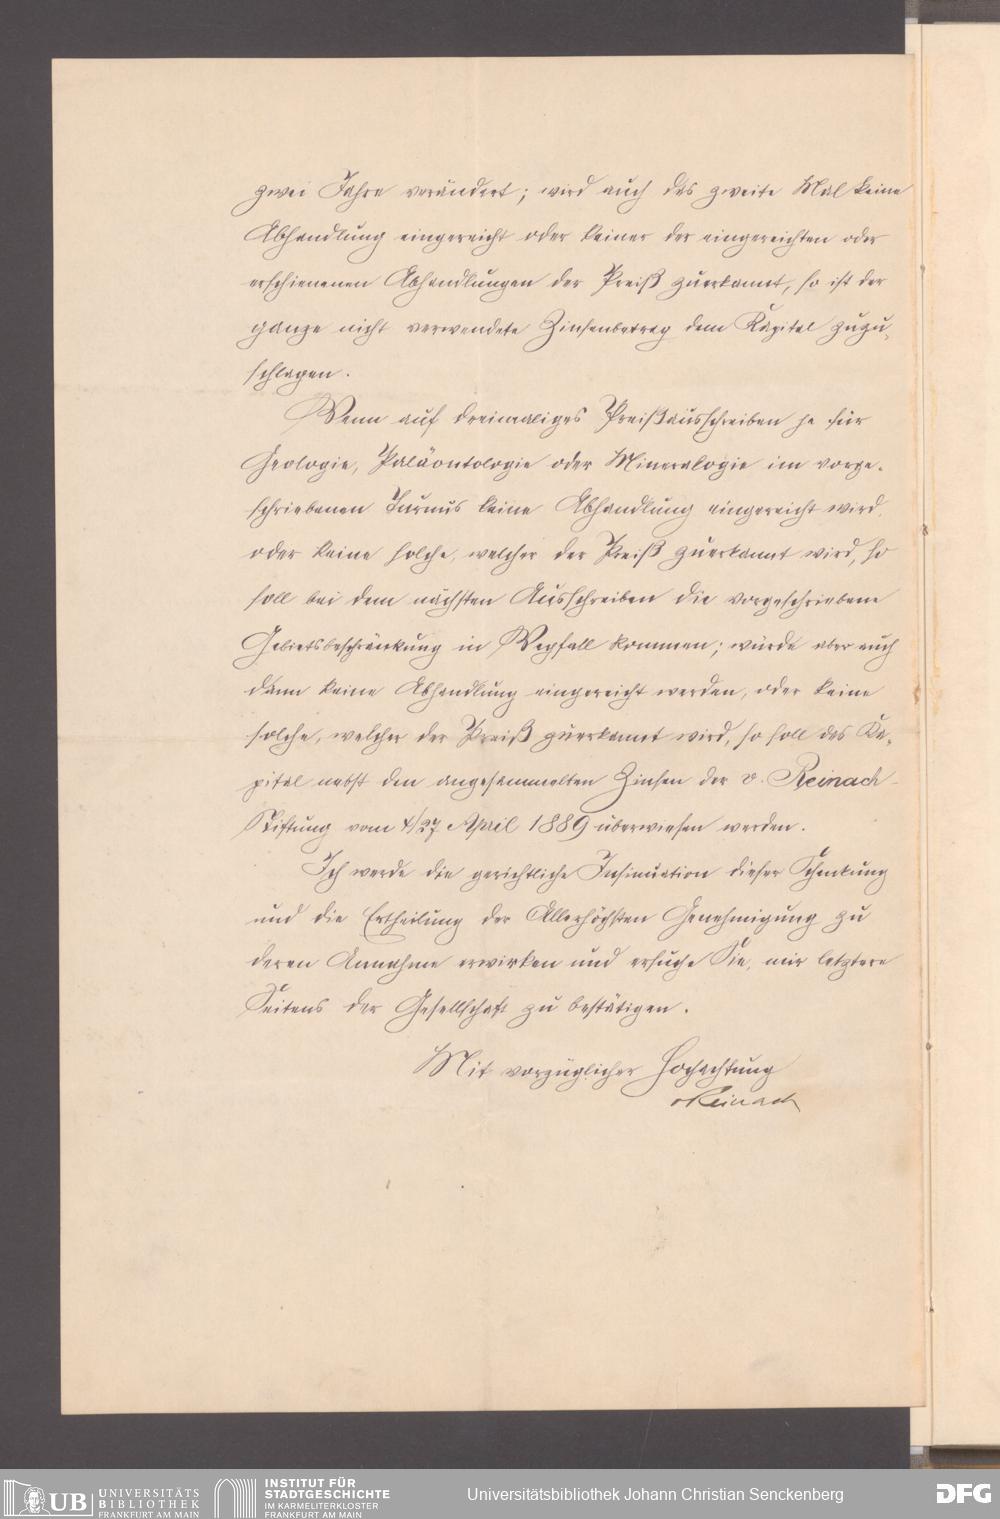 zwei Jahre verändert; wird auch das zweite Mal keine
Abhandlung eingereicht oder keiner der eingereichten oder
erschienenen Abhandlungen der Preiß zuerkannt, so ist der
ganze nicht verwendete Zinsenbetrag dem Kapital zuzu-
schlagen.
Wenn auf dreimaliges Preißausschreiben je für
Geologie, Paläontologie oder Mineralogie im vorge-
schriebenen Turnus keine Abhandlung eingereicht wird,
oder keine solche, welcher der Preiß zuerkannt wird, so
soll bei dem nächsten Ausschreiben die vorgeschriebene
Gebietsbeschränkung in Wegfall kommen; würde aber auch
dann keine Abhandlung eingereicht werden, oder keine
solche, welcher der Preiß zuerkannt wird, so soll das Ka-
pital nebst den angesammelten Zinsen der v. Reinach-
Stiftung vom 4/27 April 1889 überwiesen werden.
Ich werde die gerichtliche Insinuation dieser Schenkung
und die Ertheilung der Allerhöchsten Genehmigung zu
deren Annahme erwirken und ersuche Sie, mir letztere
Seitens der Gesellschaft zu bestätigen.
Mit vorzüglicher Hochachtung
vReinach
UB UNIVERSITÄTS
BIBLIOTHEK
FRANKFURT AM MAIN
INSTITUT FÜR
STADTGESCHICHTE
IM KARMELITERKLOSTER
FRANKFURT AM MAIN
Universitätsbibliothek Johann Christian Senckenberg
DFG